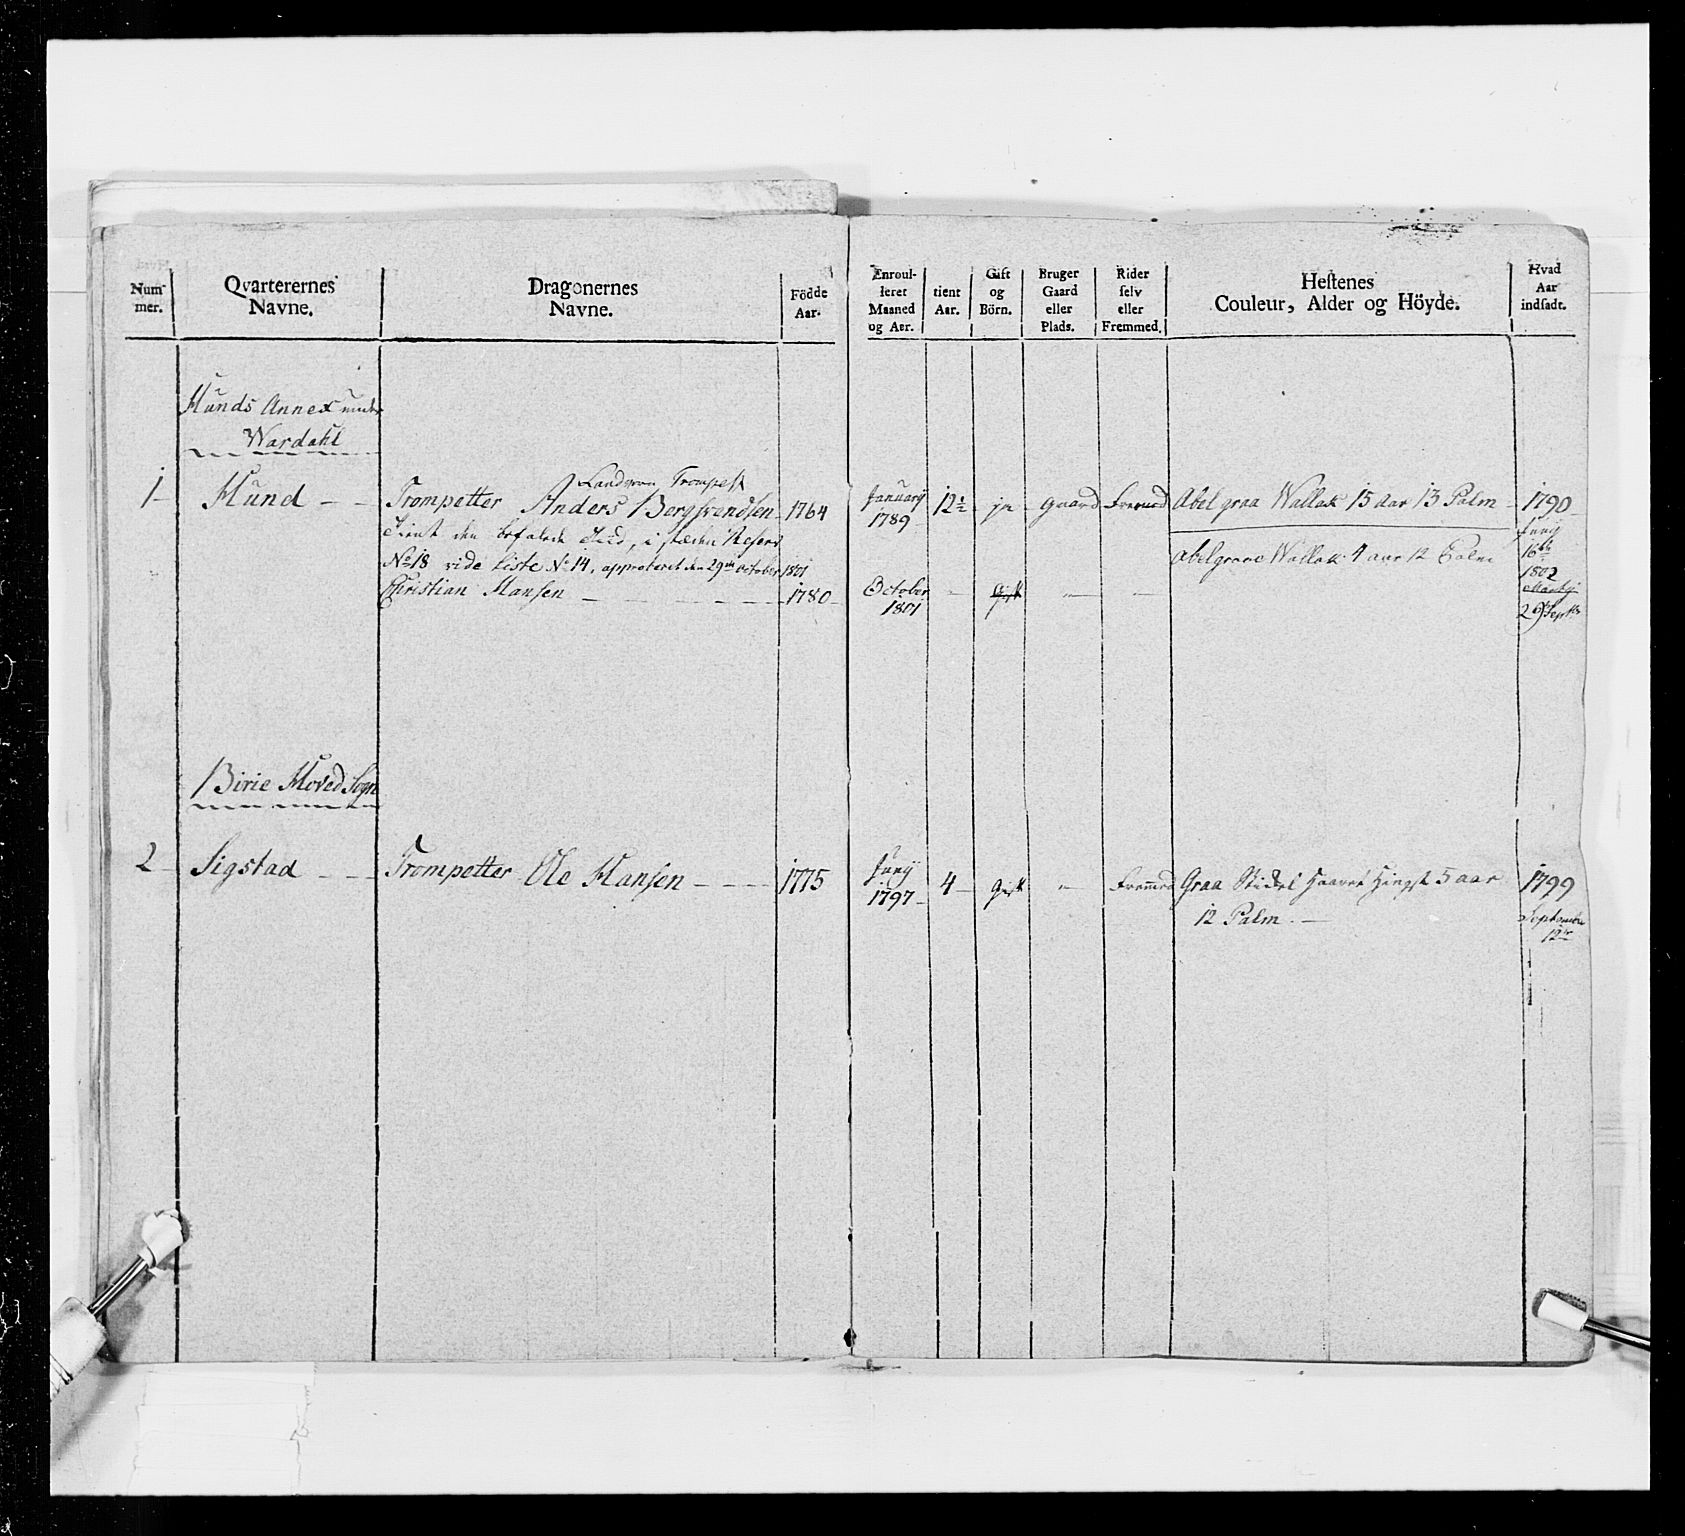 Num-
mer.
Qvarterernes
Navne.
Dragonernes
Navne.
Födde
Aar.
Enroul-
leret
Maaned
og Aar.
tient
Aar.
Gift
og
Börn.
Bruger
Gaard
eller
Plads.
Rider
selv
eller
Fremmed.
Hestenes
Couleur, Alder og Höyde.
Hvad
Aar
indsadt.
Hunds Annex under
Wardahl
1 Hund Trompetter Anders 1764 January 1789 12½ ja Gaard Fremed Abel graa Wallak 15 aar 13 Palm 1790
Landværn Trompett
tient den befalede Tiid, i steden Reserv
No 18 vide Liste No 14, approberet den 29de October 1801
Christian Hansen 1780 October 1801 Gift
Abelgraae Wallak 4 aar 12 Palm
Junij
16de
1802
29 Septbr
Birie Hoved Sogn
2 Sigstad Trompetter Ole Hansen 1775 Junij 1797 4 Gift Fremed Graa Haaret Hingst 5 aar
12 Palm
1799
September
12te